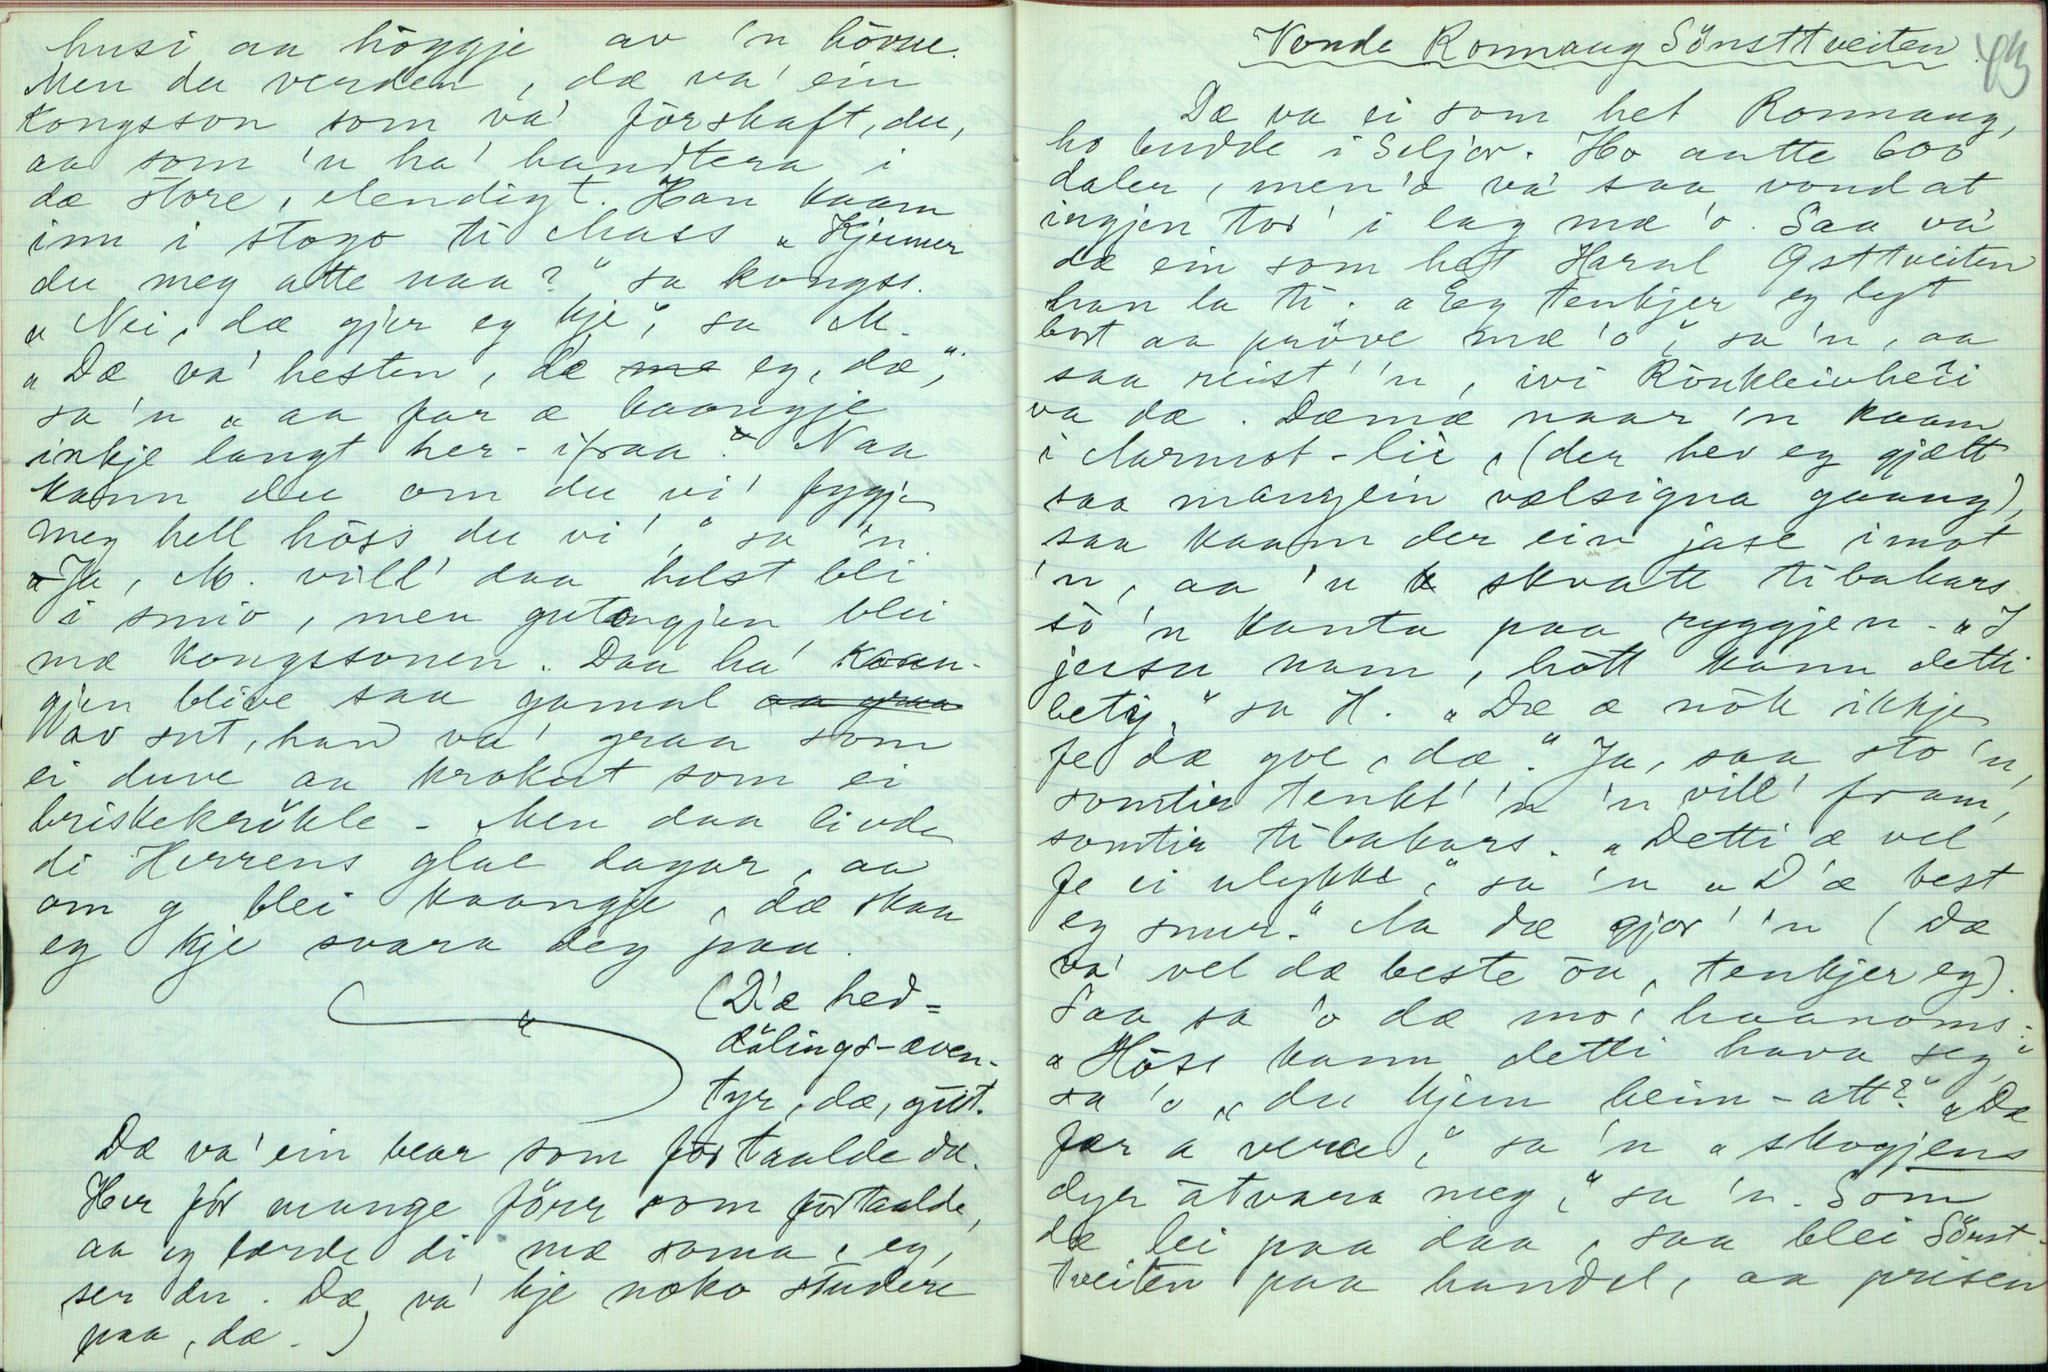 husi aa höggje av 'n hövue.
Men du verden, dæ va' ein
Kongsson som va' förskaft, du,
aa som 'n ha' handtera i
dæ store, elendigt. Han kaam
inn i stogo ti Mass „Kjenner
du meg atte naa?" sa kongss.
„Nei, dæ gjer eg kje", sa M.
„Dæ va' hesten, dæ me eg, dæ",
sa 'n „aa far æ kaangje
inkje langt her-ifraa". Naa
kann du om du vi' fygje
meg hell höss du vi'," sa 'n.
„Ja, M. vill' daa helst bli
i smio, men gutongjen blei
mæ Kongssonen. Daa ha' kaan-
gjen blive saa gamal aa graa
av sut, han va' graa som
ei duve aa krokut som ei
briskekrökle - Men daa livde
di Herrens glae dagar, aa
om g blei kaangje, dæ skaa
eg kje svara deg paa.
(D'æ hed-
dölings-æven-
tyr, dæ, gut.
Dæ va' ein bear som förtaalde dæ.
Her för mange förr som förtaalde,
aa eg lærde di mæ soma, eg,
ser du. Dæ va' kje noko studere
paa, dæ.)
Vonde Ronnaug Sönsttveiten
43
Dæ va ei som het Ronnaug,
ho budde i Seljor. Ho aatte 600
daler, men 'o va' saa vond at
ingjen tor' i lag mæ 'o. Saa va'
dæ ein som het Haral Östtveiten
han la ti. „Eg tenkjer eg lyt
bort aa pröve mæ 'o", sa 'n, aa
saa reist' 'n, ivi Rönkleivheii
va dæ. Dæmæ naar 'n kaam
i Marmot-lii, (der hev eg gjætt
saa mangein vælsigna gaang),
saa kaam der ein jase imot
'n, aa 'n k skvatt tibakars
so 'n kanta paa ryggjen. „I
jersu nam, hött kann detti
bety," sa H. „Dæ æ nök ikkje
fe dæ goe, dæ." Ja, saa sto 'n,
somtir tenkt' 'n 'n vill' fram,
somtir tibakars. „Detti æ vel
fe ei ulykke," sa 'n „D'æ best
eg snur." Aa dæ gjor' 'n (Dæ
va' vel dæ beste öu, tenkjer eg).
Saa sa 'o dæ mo' haanoms.
„Höss kann detti hava seg,"
sa 'o „du kjem heim-att?" „Dæ
fær a vera," sa 'n „skogjens
dyr åtvara meg," sa 'n. Som
dæ lei paa daa, saa blei Sönst-
tveiten paa handel, aa prisen